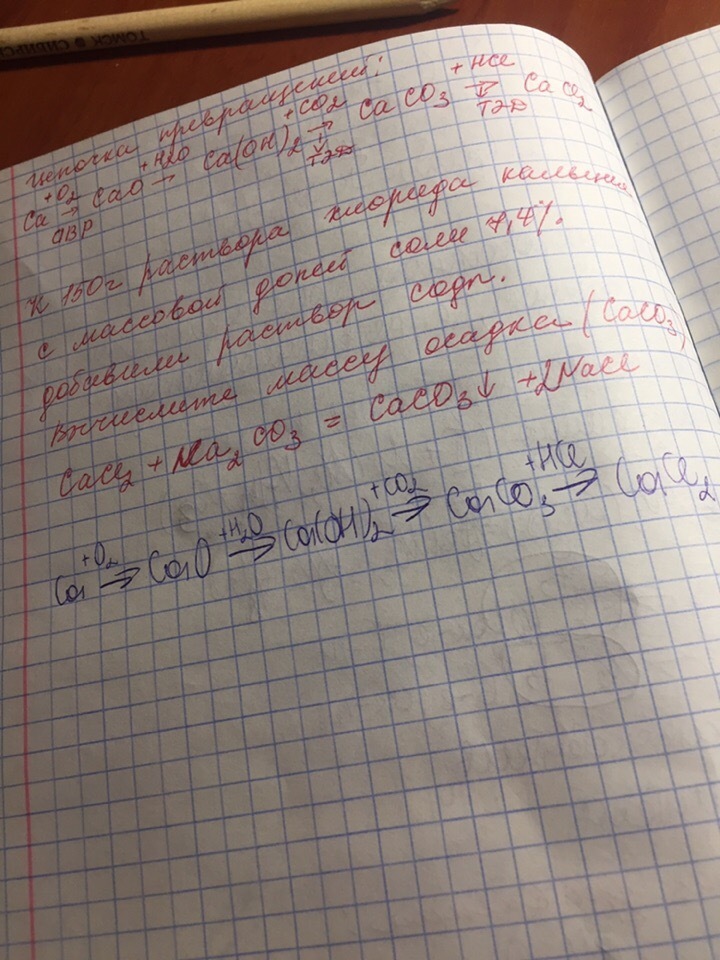 ТОМСК • СИБИРС
Цепочка превращений:
Ca +O2 → CaO +H2O → Ca(OH)2 +CO2 → CaCO3 +HCl → CaCl2
ОВР ТЭД ТЭД
К 150г раствора хлорида кальция
с массовой долей соли 7,4%.
добавили раствор соды.
Вычислите массу осадка (CaCO3)
CaCl2 + Na2CO3 = CaCO3↓ + 2NaCl
Ca +O2 → CaO +H2O → Ca(OH)2 +CO2 → CaCO3 +HCl → CaCl2